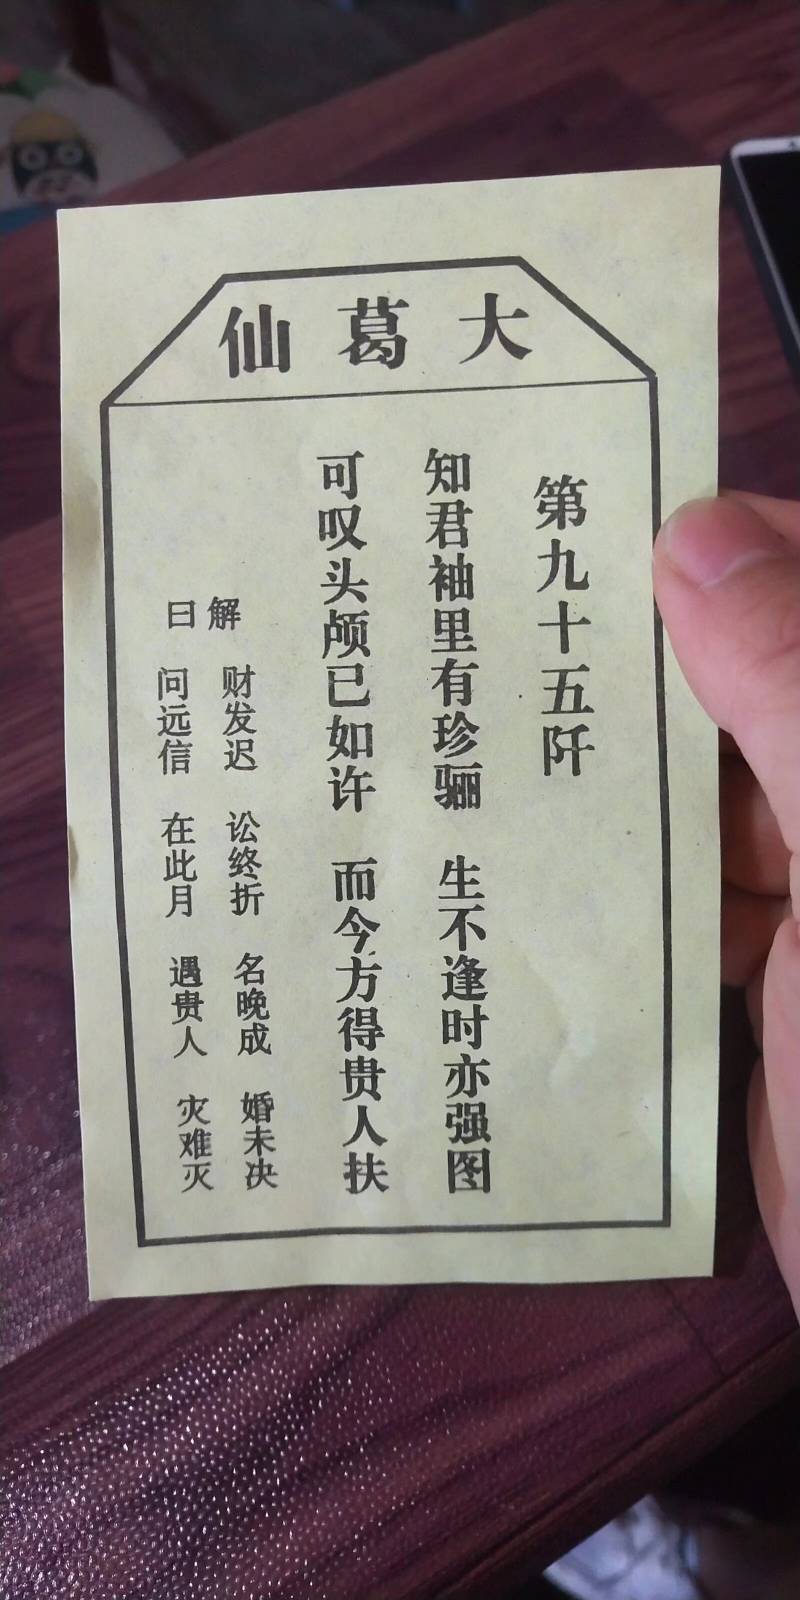 大葛仙
第九十五阡
知君袖里有珍骊 生不逢时亦强图
可叹头颅已如许 而今方得贵人扶
解曰
财发迟 讼终折 名晚成 婚未决
问远信 在此月 遇贵人 灾难灭